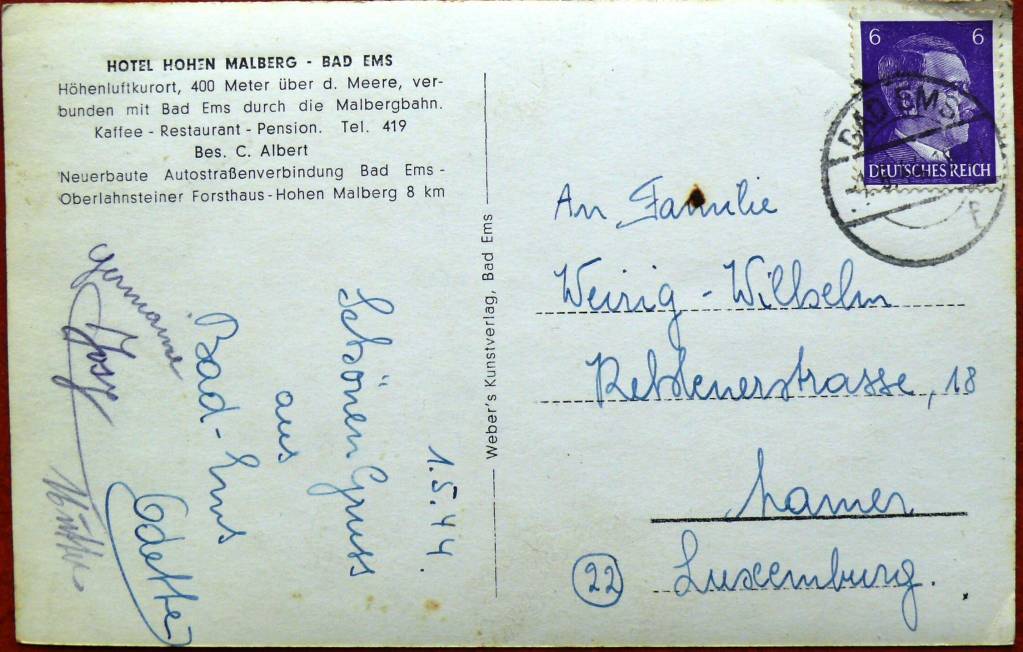 HOTEL HOHEN MALBERG - BAD EMS
Höhenluftkurort, 400 Meter über d. Meere, ver-
bunden mit Bad Ems durch die Malbergbahn.
Kaffee - Restaurant - Pension. Tel. 419
Bes. C. Albert
Neuerbaute Autostraßenverbindung Bad Ems -
Oberlahnsteiner Forsthaus - Hohen Malberg 8 km
1.5.44.
Schönen Gruss
aus
Bad-Ems
Odette
Germaine
Josy
Weber's Kunstverlag, Bad Ems
6 6
DEUTSCHES REICH
BAD EMS
An Familie
Weirig - Wilhelm
18
Mamer
(22) Luxemburg.